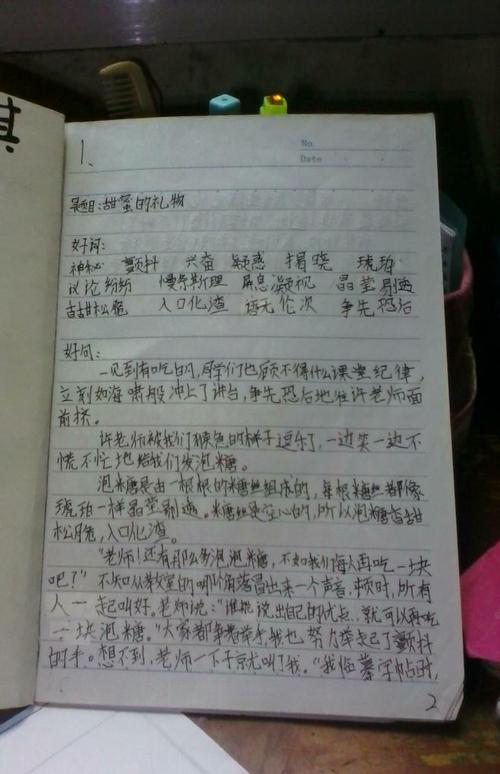 其
No
Date
1、
题目:甜蜜的礼物
好词:
神秘 颤抖 兴奋 疑惑 揭晓 琥珀
议论纷纷 慢条斯理 屏息凝视 晶莹剔透
香甜松脆 入口化渣 语无伦次 争先恐后
好句:
一见到有吃的,同学们也顾不得什么课堂纪律,
立刻如海啸般冲上了讲台,争先恐后地往许老师面
前挤。
许老师被我们猴急的样子逗乐了,一边笑一边不
慌不忙地给我们发泡糖。
泡糖是由一根根的糖丝组成的,每根糖丝都像
琥珀一样晶莹剔透。糖丝是空心的,所以泡糖香甜
松脆,入口化渣。
"老师!还有那么多泡泡糖,不如我们每人再吃一块
吧?"不知从教室的哪个角落冒出来一个声音,顿时,所有
人一起叫好。老师说:"谁能说出自己的优点,就可以再吃
一块泡糖。"大家都争着举手,我也努力举起了颤抖
的手。想不到,老师一下子就叫了我。"我临摹字帖时,
2